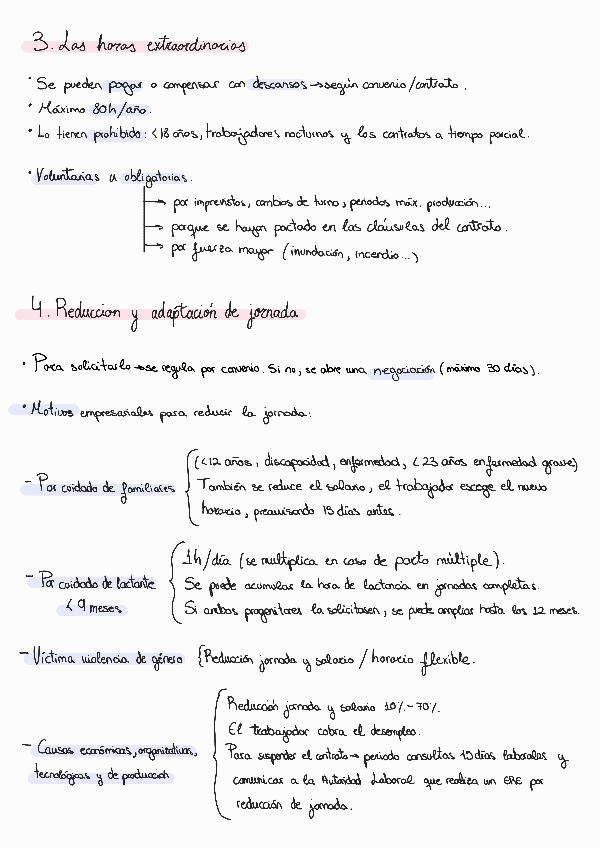 3. Las horas extraordinarias
· Se pueden pagar o compensar con descansos → según convenio/contrato.
· Máximo 80h/año.
· Lo tienen prohibido: <18 años, trabajadores nocturnos y los contratos a tiempo parcial.
· Voluntarias u obligatorias.
→ por imprevistos, cambios de turno, periodos máx. producción...
→ porque se hayan pactado en las cláusulas del contrato.
→ por fuerza mayor (inundación, incendio...)
4. Reduccion y adaptación de jornada
· Para solicitarlo → se regula por convenio. Si no, se abre una negociación (máximo 30 días).
· Motivos empresariales para reducir la jornada:
- Por cuidado de familiares
(<12 años, discapacidad, enfermedad, <23 años enfermedad grave)
También se reduce el salario, el trabajador escoge el nuevo
horario, preavisando 15 días antes.
- Por cuidado de lactante
< 9 meses
1h/día (se multiplica en caso de parto múltiple).
Se puede acumular la hora de lactancia en jornadas completas.
Si ambos progenitores la solicitasen, se puede ampliar hasta los 12 meses.
- Víctima violencia de género {Reducción jornada y salario / horario flexible.
- Causas económicas, organizativas,
tecnológicas y de producción
Reducción jornada y salario 10%-70%.
El trabajador cobra el desempleo.
Para suspender el contrato → periodo consultas 15 días laborales y
comunicar a la Autoridad Laboral que realiza un ERE por
reducción de jornada.